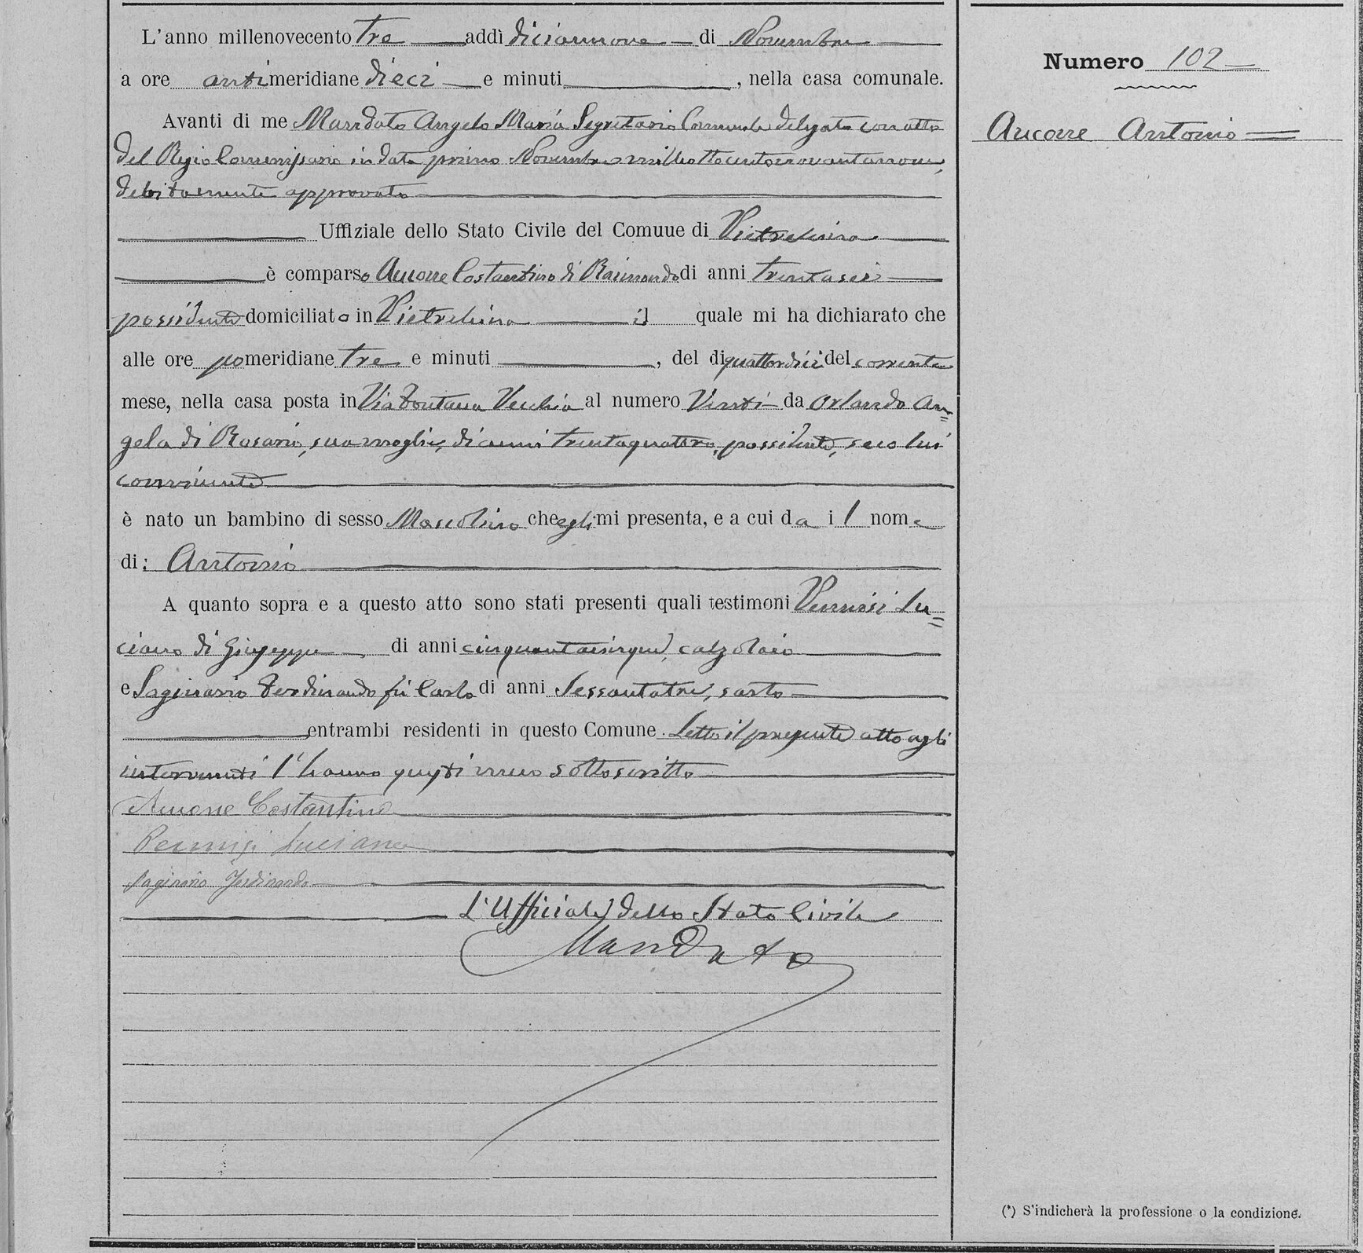 L'anno millenovecento tre addì diciannove di Novembre
a ore antimeridiane dieci e minuti , nella casa comunale.
Avanti di me Mandato Angelo Maria Segretario Comunale delegato con atto
del Regio Commissario in data primo Novembre milleottocentonovantanove,
debitamente approvato
Uffiziale dello Stato Civile del Comuue di Pietrelcina
è comparso Aucone Costantino di Raimondo di anni trentasei
possidente domiciliato in Pietrelcina il quale mi ha dichiarato che
alle ore pomeridiane tre e minuti , del dì quattordici del corrente
mese, nella casa posta in Via Fontana Vecchia al numero Venti da Orlando An=
gela di Rosario, sua moglie, di anni trentaquattro, possidente, seco lui
convivente
è nato un bambino di sesso Mascolino che egli mi presenta, e a cui da il nome
di: Antonio
A quanto sopra e a questo atto sono stati presenti quali testimoni Pennisi Lu=
ciano di Giuseppe di anni cinquantacinque, calzolaio
e Saginario Ferdinando fu Carlo di anni Sessantatre, sarto
entrambi residenti in questo Comune. Letto il presente atto agli
intervenuti l'hanno questi meco sottoscritto
Aucone Costantino
Luciano
Saginario Ferdinando
L'Ufficiale dello Stato Civile
Mandato
Numero 102
Aucone Antonio
(*) S'indicherà la professione o la condizione.